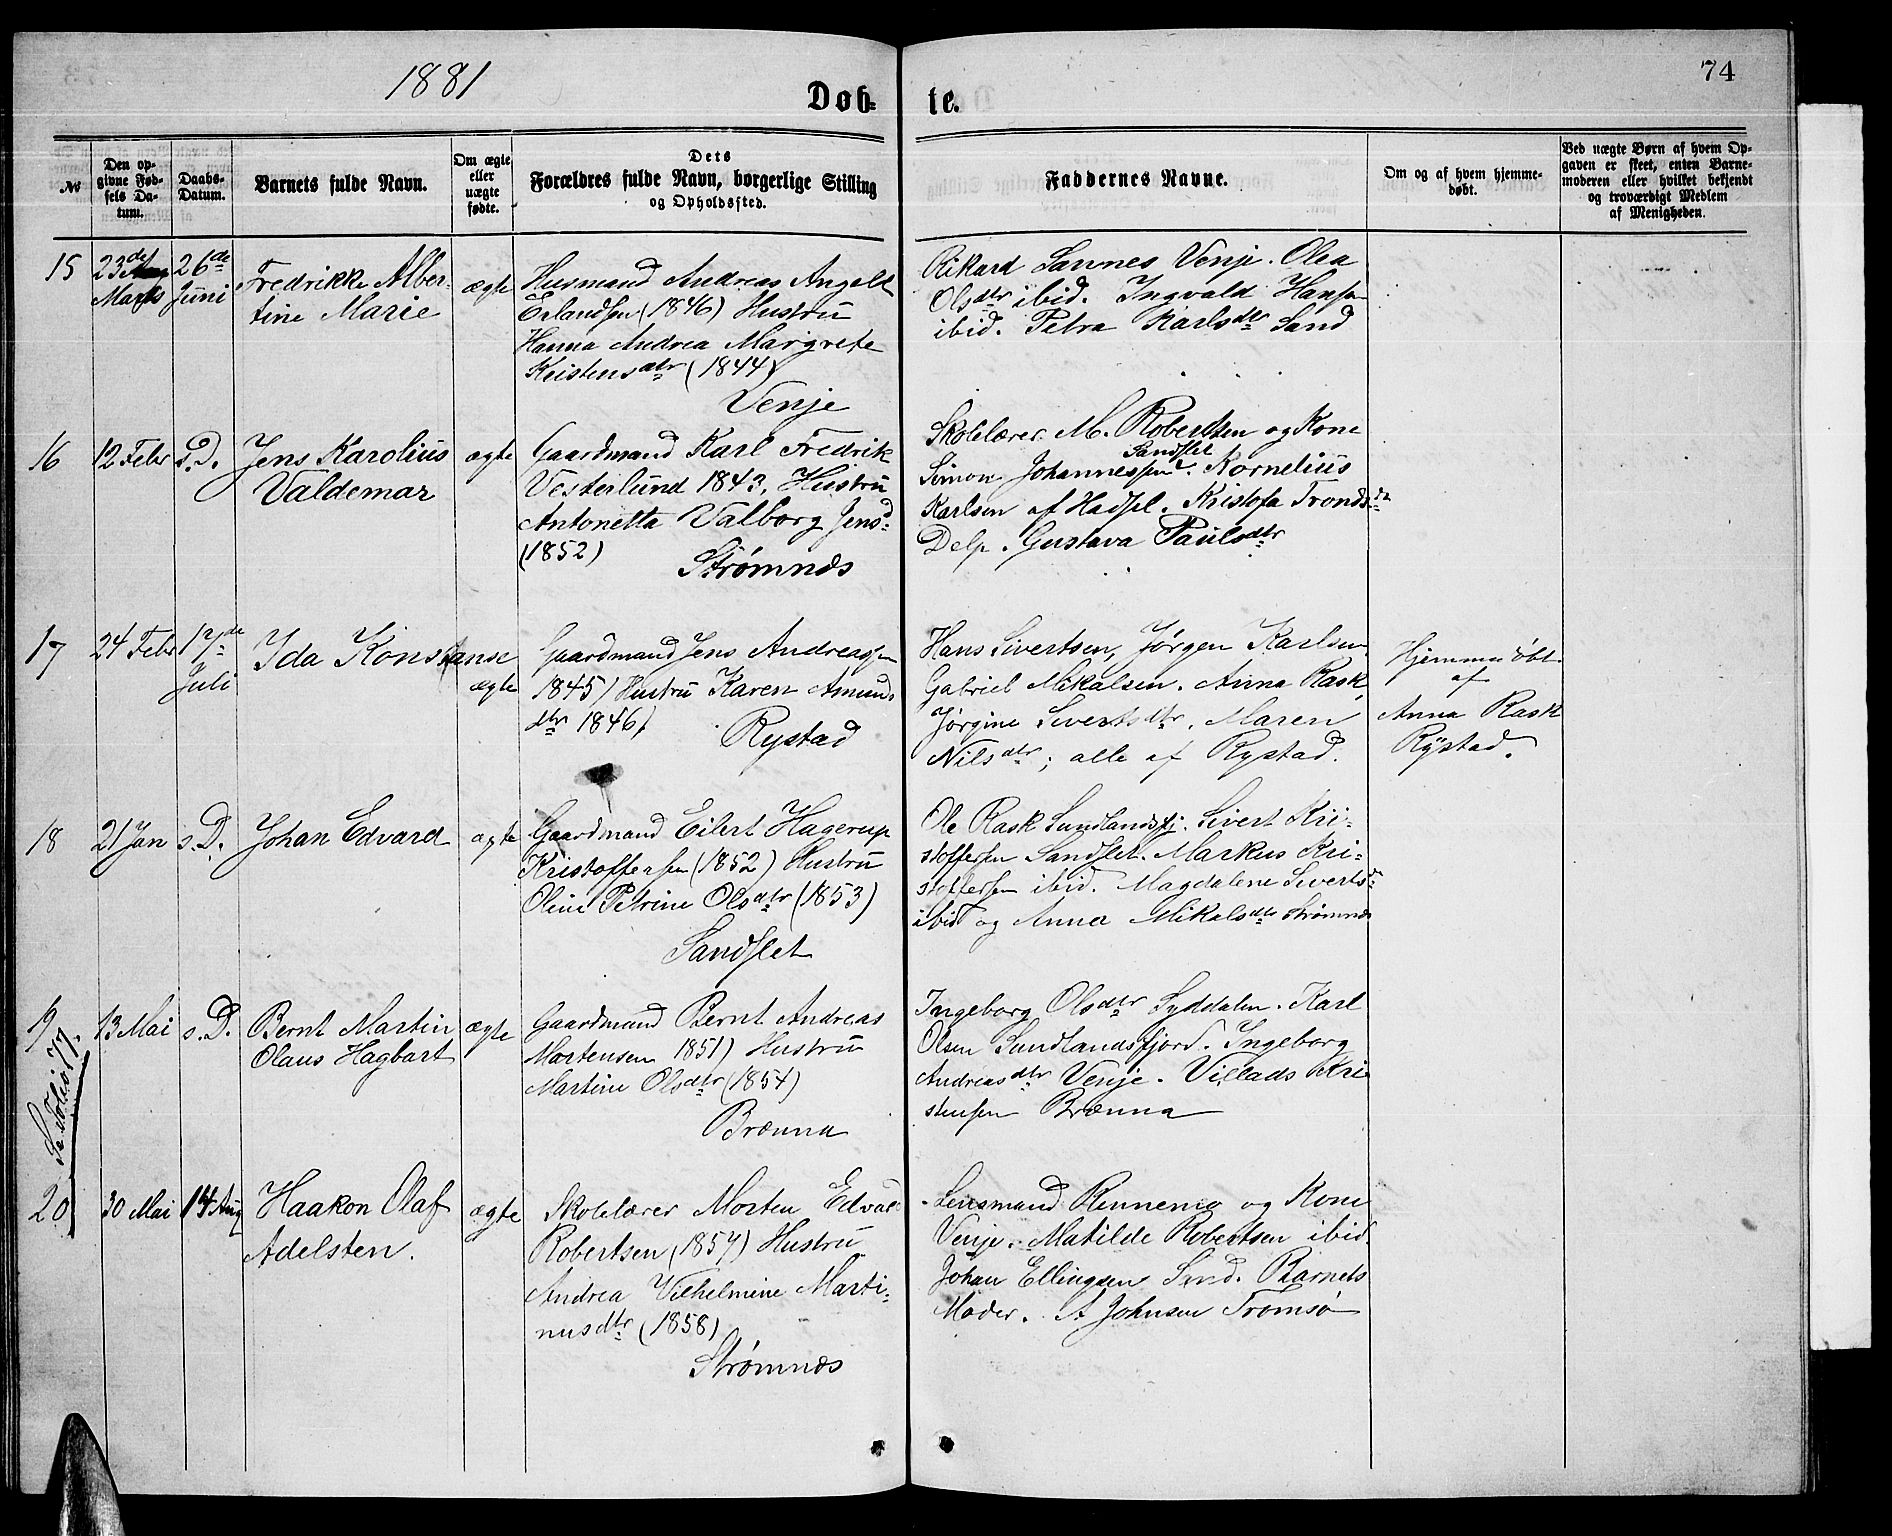 1881
74
Døb-
te.
№
Den op-
givne Fød-
sels Da-
tum.
Daabs-
Datum.
Barnets fulde Navn.
Om ægte
eller
uægte
fødte.
Dets
Forældres fulde Navn, borgerlige Stilling
og Opholdssted.
Faddernes Navne.
Om og af hvem hjemme-
døbt.
Ved uægte Børn af hvem Op-
gaven er skeet, enten Barne-
moderen eller hvilket bekjendt
og troværdigt Medlem
af Menigheden.
15
23de
Marts
26de
Juni
Fredrikke Alber-
tine Marie
ægte
Husmand Andreas Angell
Erlandsen (1846) Hustru
Hanna Andrea Margrete
Kristensdtr (1844)
Venje
Rikard Sannes Venje. Olea
Olsdtr ibid. Ingvald Hansen
ibid. Petra Karlsdtr Sand
16
12 Febr
s.D.
Jens Karolius
Valdemar
ægte
Gaardmand Karl Fredrik
Vesterlund 1843, Hustru
Antonetta Valborg Jensd
(1852)
Strømnæs
Skolelærer M. Robertsen og Kone
Sandslet
Simon Johannessen. Kornelius
Karlsen af Hadsel. Kristofa Trondsdr
Delp. Gustava Paulsdtr
17
24 Febr
17de
Juli
Ida Konstanse
ægte
Gaardmand Jens Andreassen
1845) Hustru Karen Amunds
dtr 1846)
Rystad
Hans Sivertsen, Jørgen Karlsen
Gabriel Mikalsen. Anna Rask,
Jørgine Sivertsdtr, Maren
Nilsdtr; alle af Rystad.
Hjemmedøbt
af
Anna Rask
Rystad.
18
21 Jan
s.D.
Johan Edvard
ægte
Gaardmand Eilert Hagerup
Kristoffersen (1852) Hustru
Oline Petrine Olsdtr (1853)
Sandslet
Ole Rask Sundlandsfj. Sivert Kri-
stoffersen Sandslet. Markus Kri-
stoffersen ibid. Magdalene Sivertsdr
ibid og Anna Mikalsdtr Strømnæs
19
Se Folio 77.
13 Mai
s.D.
Bernt Martin
Olaus Hagbart
ægte
Gaardmand Bernt Andreas
Mortensen 1851) Hustru
Martine Olsdtr (1854)
Brænna
Ingeborg Olsdtr Syddalen. Karl
Olsen Sundlandsfjord. Ingeborg
Andreasdtr Venje. Villads Kri
stensen Brænna
20
30 Mai
14 Aug
Haakon Olaf
Adelsten.
ægte
Skolelærer Morten Edvard
Robertsen (1857) Hustru
Andrea Vilhelmine Marti-
nusdtr (1858)
Strømnæs
Lensmand Rennemo og Kone
Venje. Matilde Robertsen ibid.
Johan Ellingsen Sund. Barnets
Moder. A Johnsen Tromsø